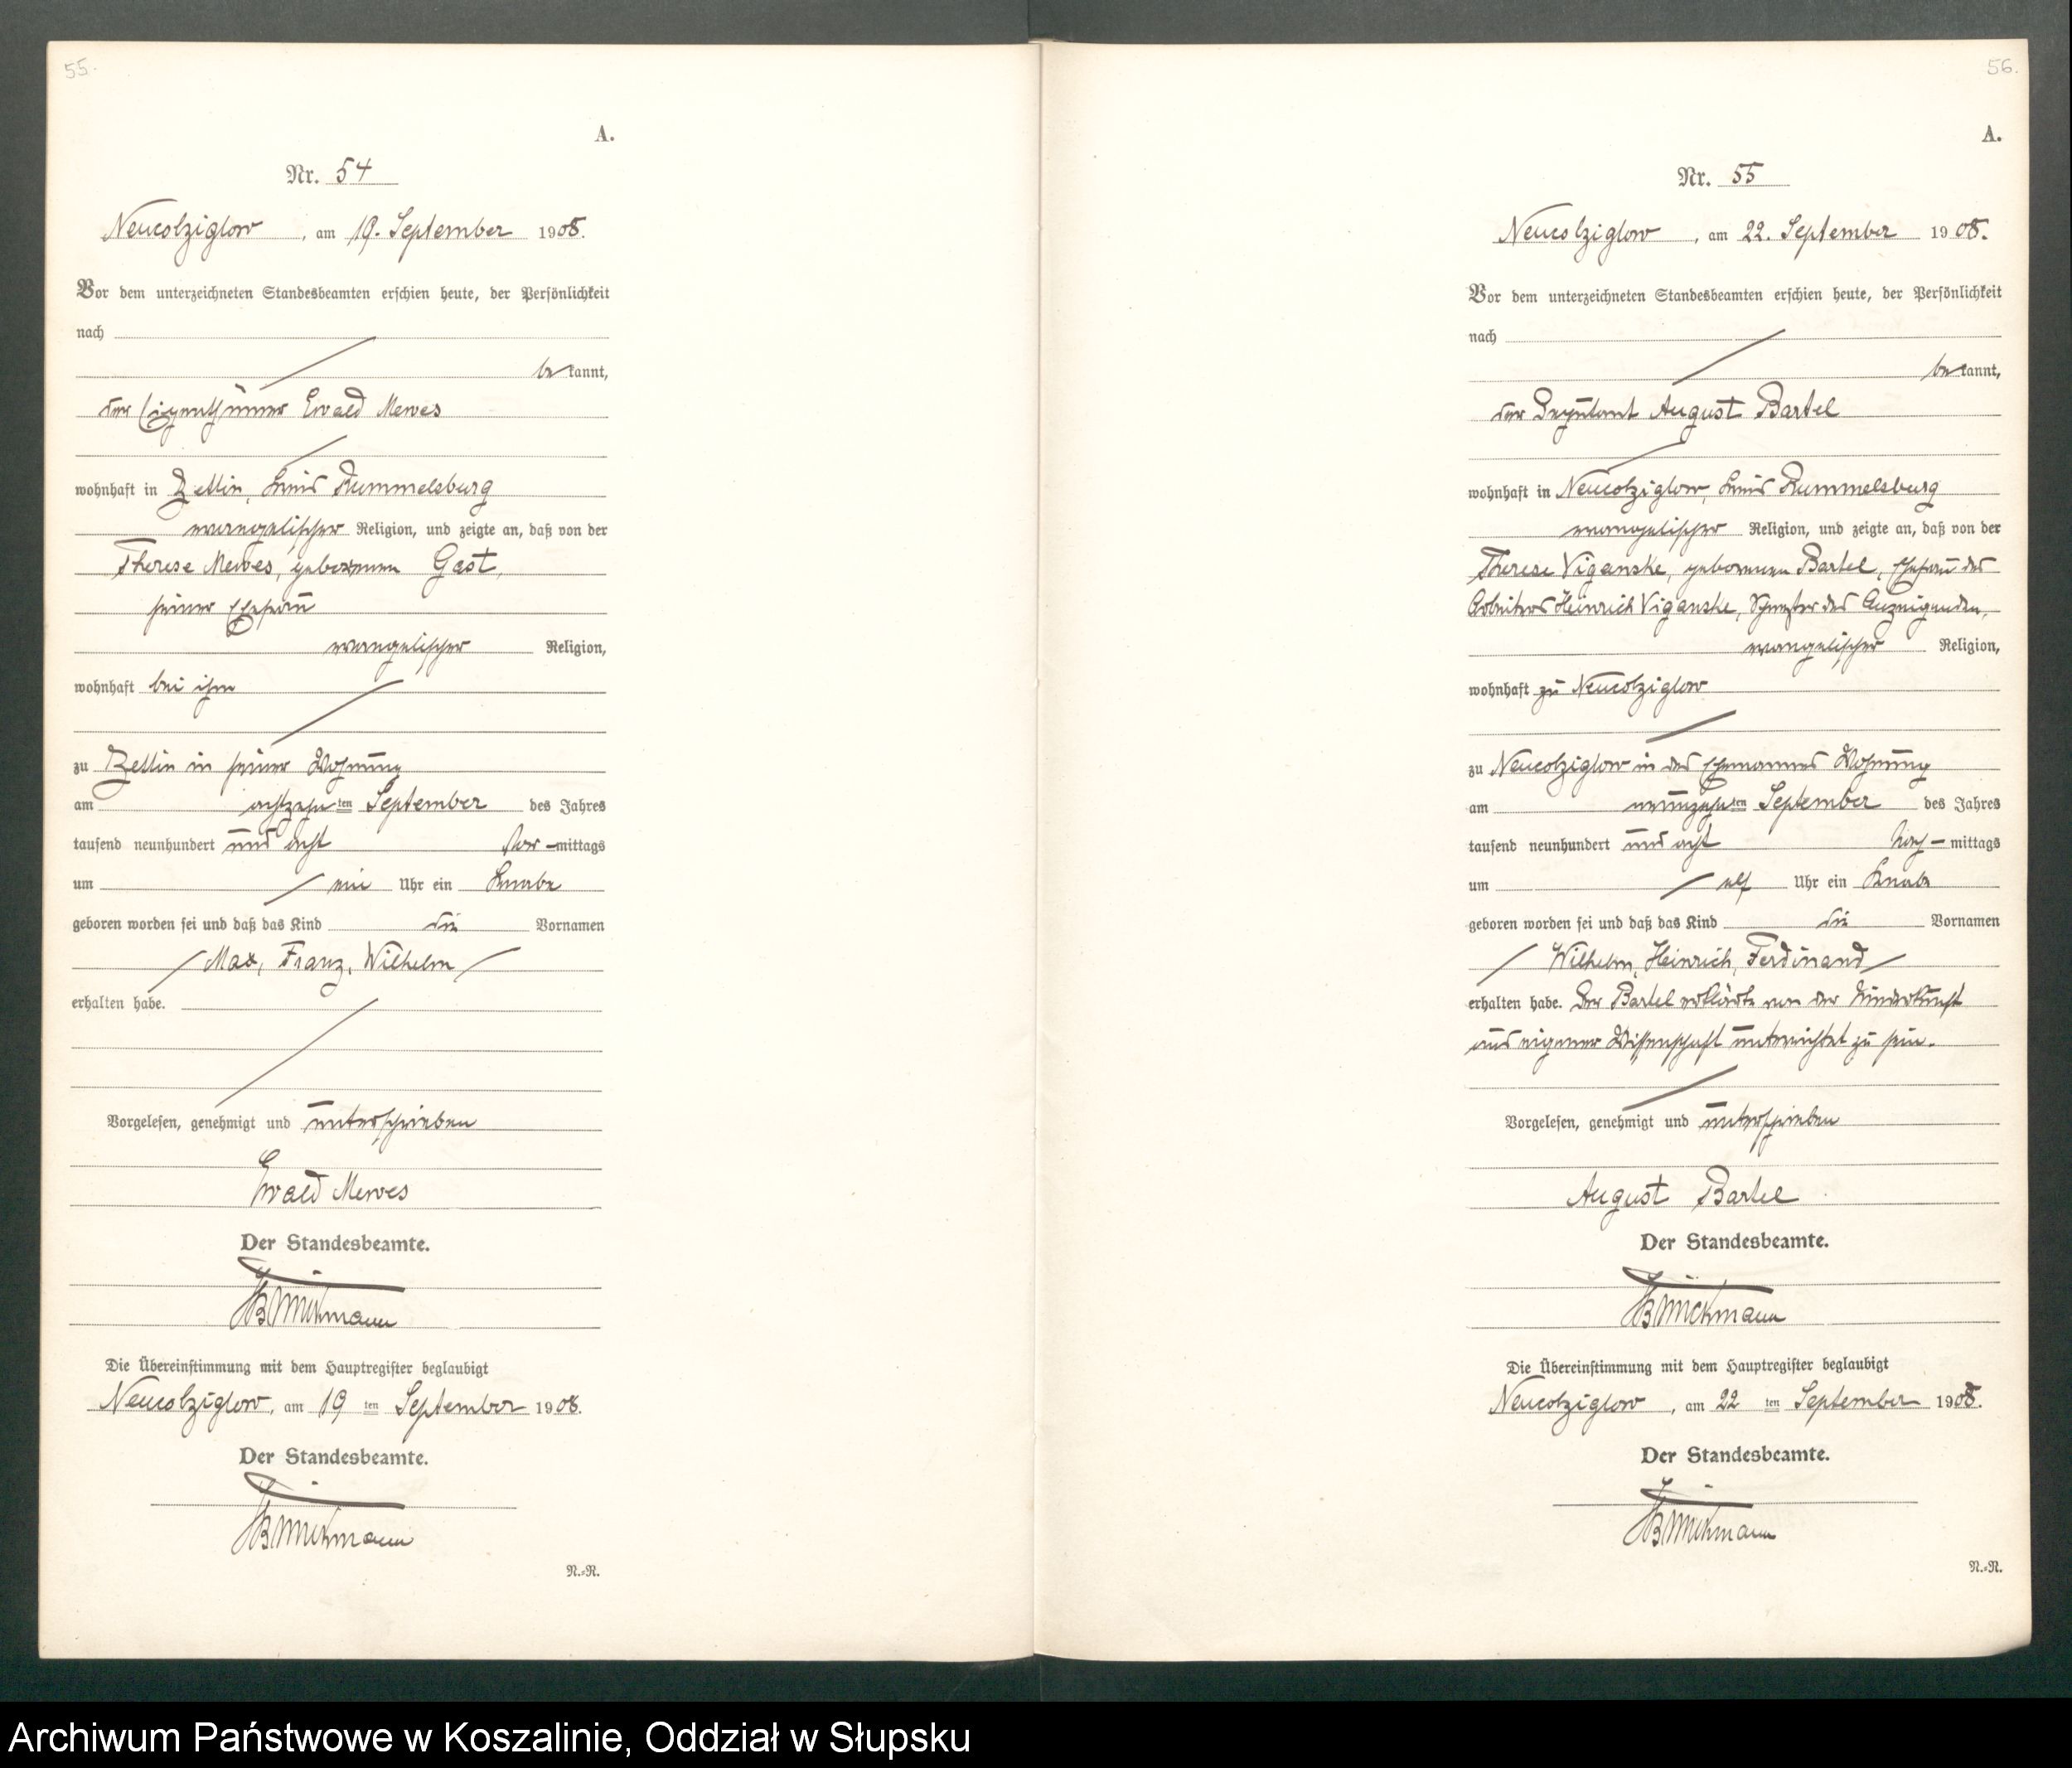 55.
A.
Nr. 54
Neucolziglow, am 19. September 1908.
Vor dem unterzeichneten Standesbeamten erschien heute, der Persönlichkeit
nach
bekannt,
der Eigenthümer Ewald Mewes
wohnhaft in Zettin, Kreis Rummelsburg
evangelischer Religion, und zeigte an, daß von der
Therese Mewes, geborenen Gast,
seiner Ehefrau
evangelischer Religion,
wohnhaft bei ihm
zu Zettin in seiner Wohnung
am achtzehnten September des Jahres
tausend neunhundert und acht Vor-mittags
um ein Uhr ein Knabe
geboren worden sei und daß das Kind die Vornamen
Max, Franz, Wilhelm
erhalten habe.
Vorgelesen, genehmigt und unterschrieben
Ewald Mewes
Der Standesbeamte.
Brückmann
Die Übereinstimmung mit dem Hauptregister beglaubigt
Neucolziglow, am 19 ten September 1908.
Der Standesbeamte.
Brückmann
N.=N.
56.
A.
Nr. 55
Neucolziglow, am 22. September 1908.
Vor dem unterzeichneten Standesbeamten erschien heute, der Persönlichkeit
nach
bekannt,
der Deputant August Bartel
wohnhaft in Neucolziglow, Kreis Rummelsburg
evangelischer Religion, und zeigte an, daß von der
Therese Viganske, geborenen Bartel, Ehefrau des
Arbeiters Heinrich Viganske, Schwester des Anzeigenden,
evangelischer Religion,
wohnhaft zu Neucolziglow
zu Neucolziglow in des Ehemannes Wohnung
am neunzehnten September des Jahres
tausend neunhundert und acht Nach-mittags
um elf Uhr ein Knabe
geboren worden sei und daß das Kind die Vornamen
Wilhelm, Heinrich, Ferdinand
erhalten habe. Der Bartel erklärte von der Niederkunft
aus eigener Wissenschaft unterrichtet zu sein.
Vorgelesen, genehmigt und unterschrieben
August Bartel
Der Standesbeamte.
Brückmann
Die Übereinstimmung mit dem Hauptregister beglaubigt
Neucolziglow, am 22 ten September 1908.
Der Standesbeamte.
Brückmann
N.=N.
Archiwum Państwowe w Koszalinie, Oddział w Słupsku